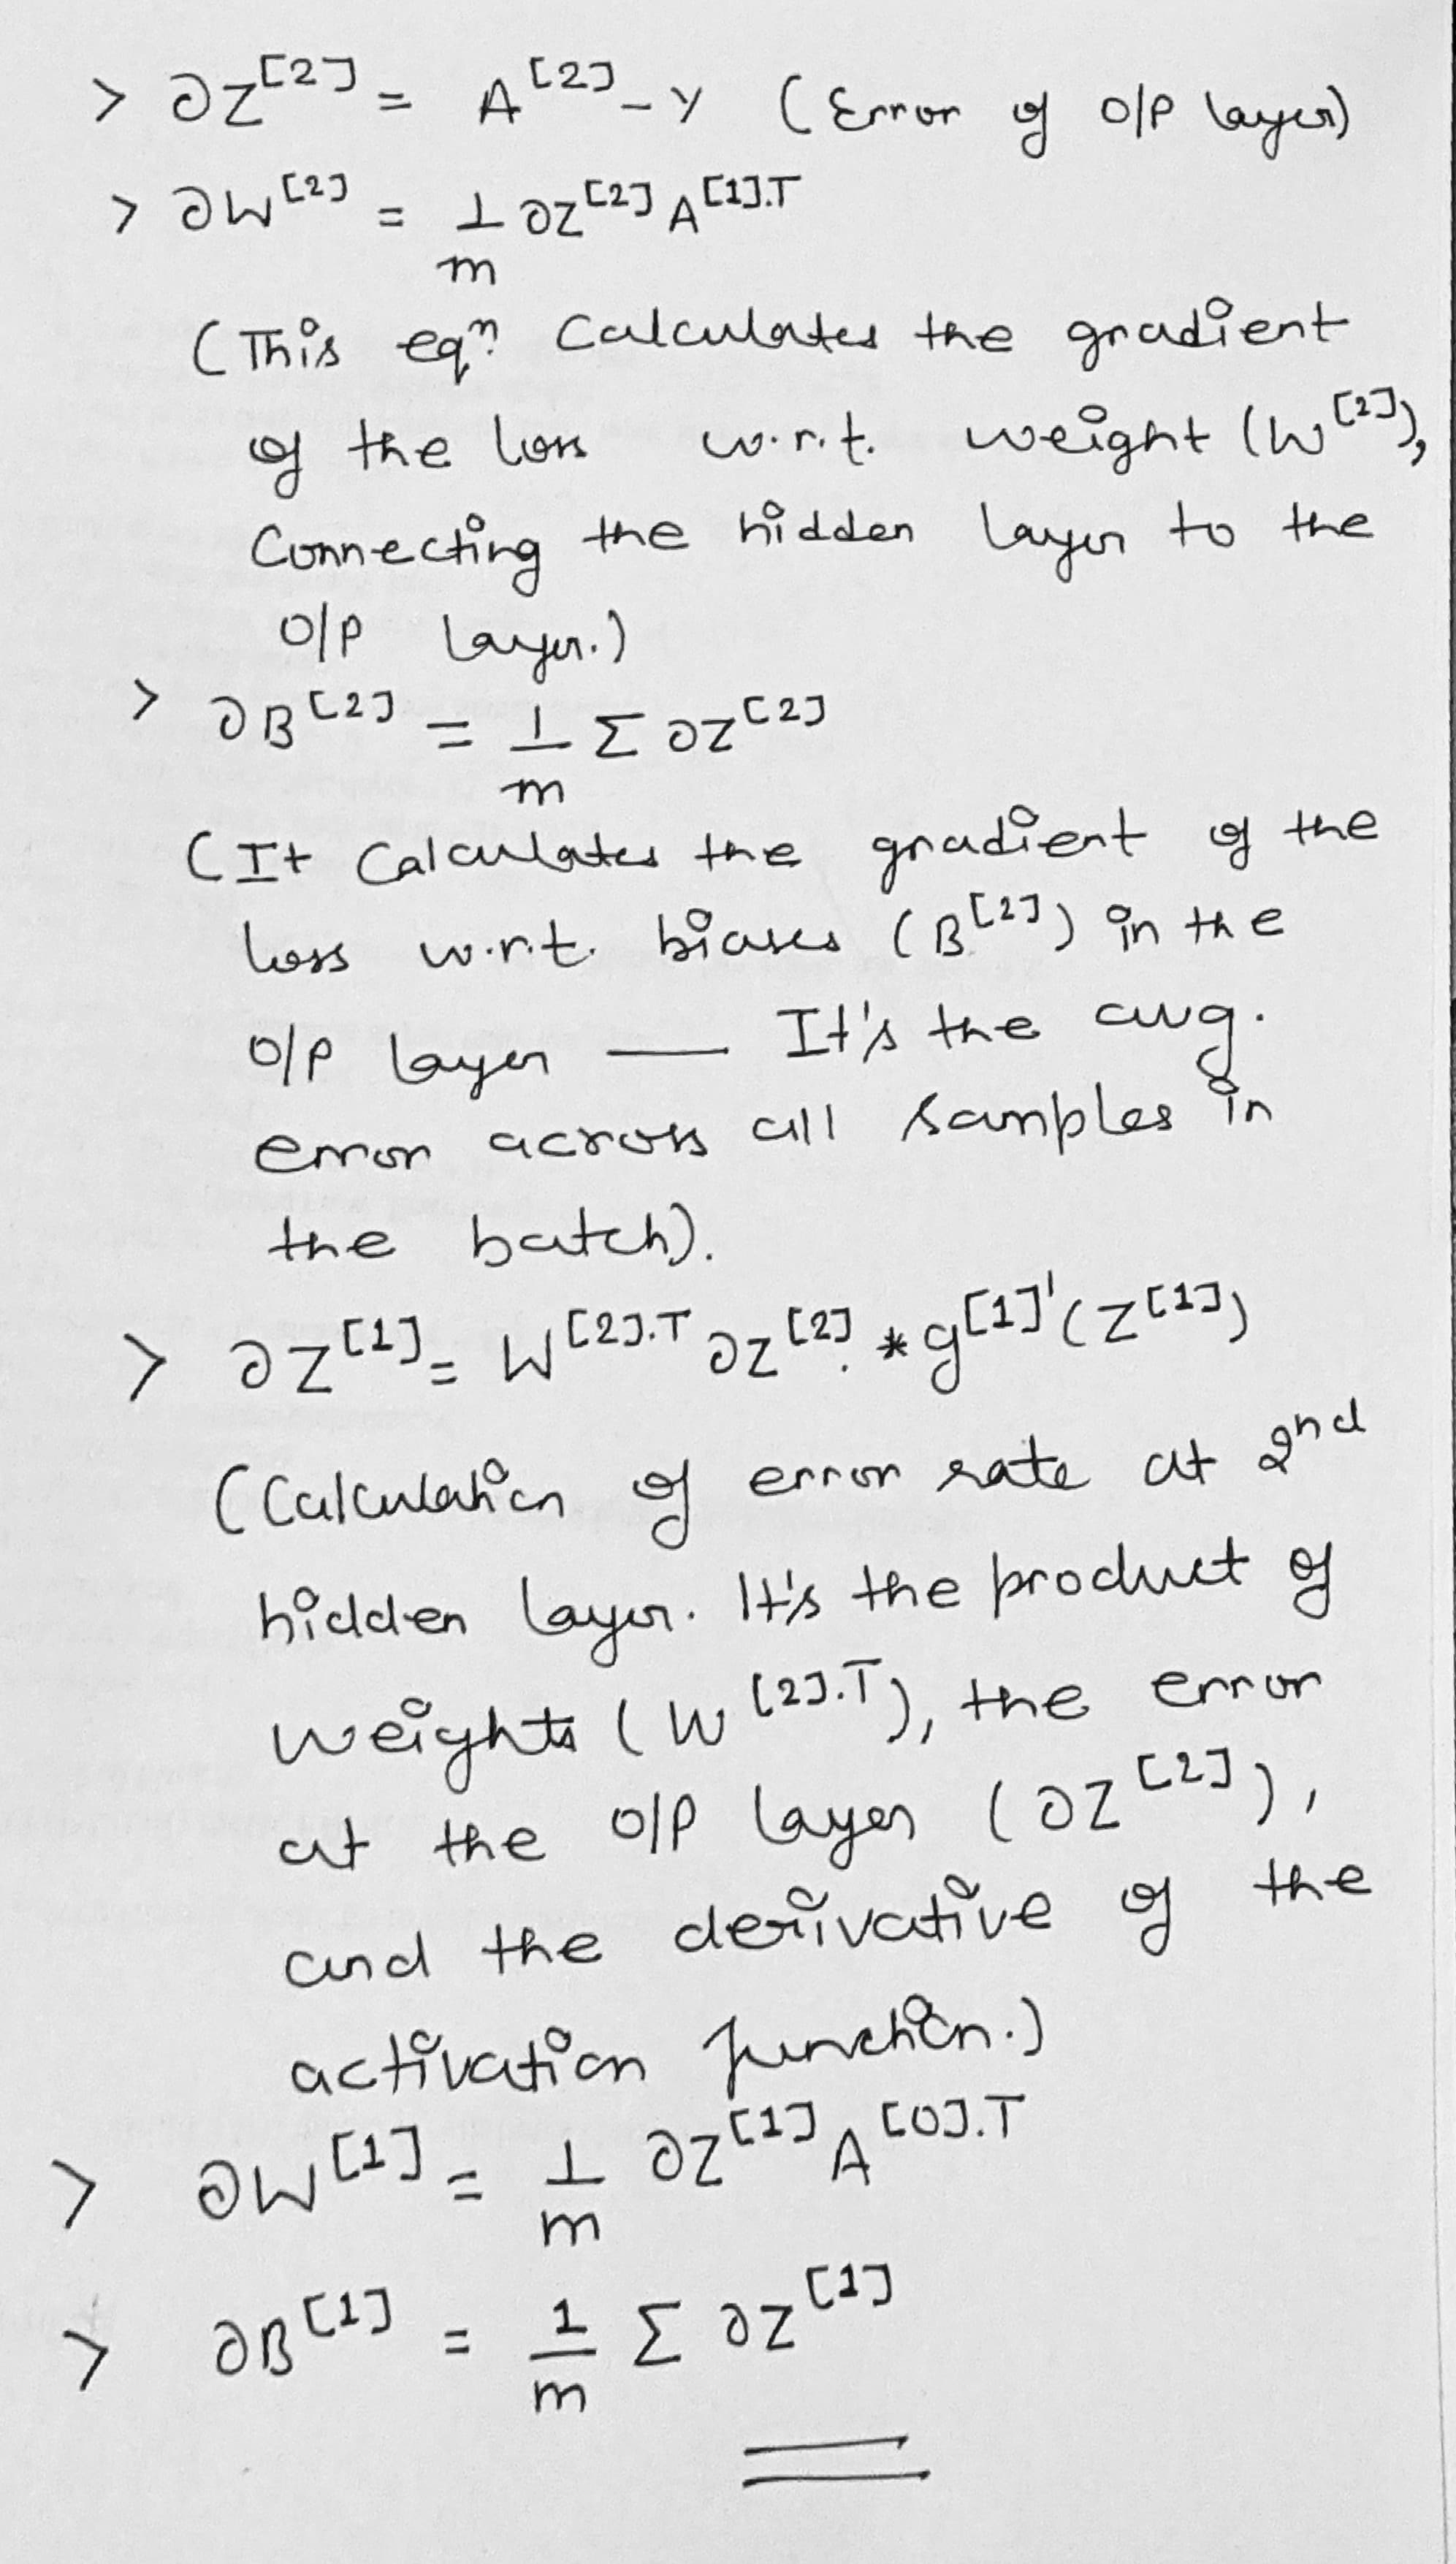 > ∂Z^[2] = A^[2] - Y (Error of O/P layer)
> ∂W^[2] = 1/m ∂Z^[2] A^[1].T
(This eqⁿ. Calculates the gradient
of the loss w.r.t. weight (W^[2]),
Connecting the hidden layer to the
O/P layer.)
> ∂B^[2] = 1/m Σ ∂Z^[2]
(It Calculates the gradient of the
loss w.r.t. biases (B^[2]) in the
O/P layer — It's the avg.
error across all samples in
the batch).
> ∂Z^[1] = W^[2].T ∂Z^[2] .* g^[1]'(Z^[1])
(Calculation of error rate at 2nd
hidden layer. It's the product of
weights (W^[2].T), the error
at the O/P layer (∂Z^[2]),
and the derivative of the
activation function.)
> ∂W^[1] = 1/m ∂Z^[1] A^[0].T
> ∂B^[1] = 1/m Σ ∂Z^[1]